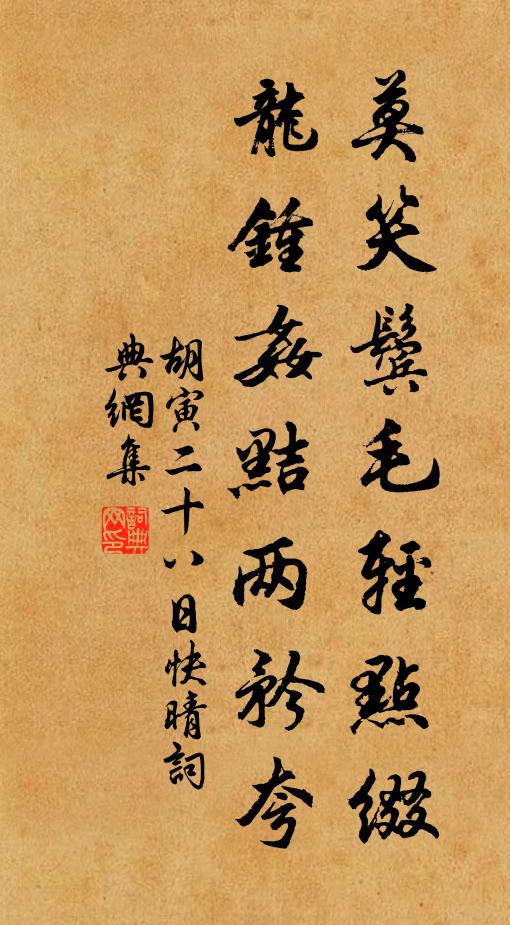 莫笑鬓毛輕點綴
龍鍾姦黠两矜夸
胡寅二十八日快晴詞
典網集
詞典